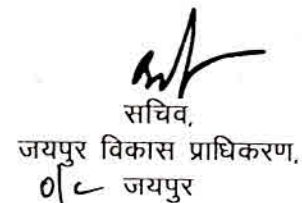 सचिव,
जयपुर विकास प्राधिकरण,
o/c जयपुर